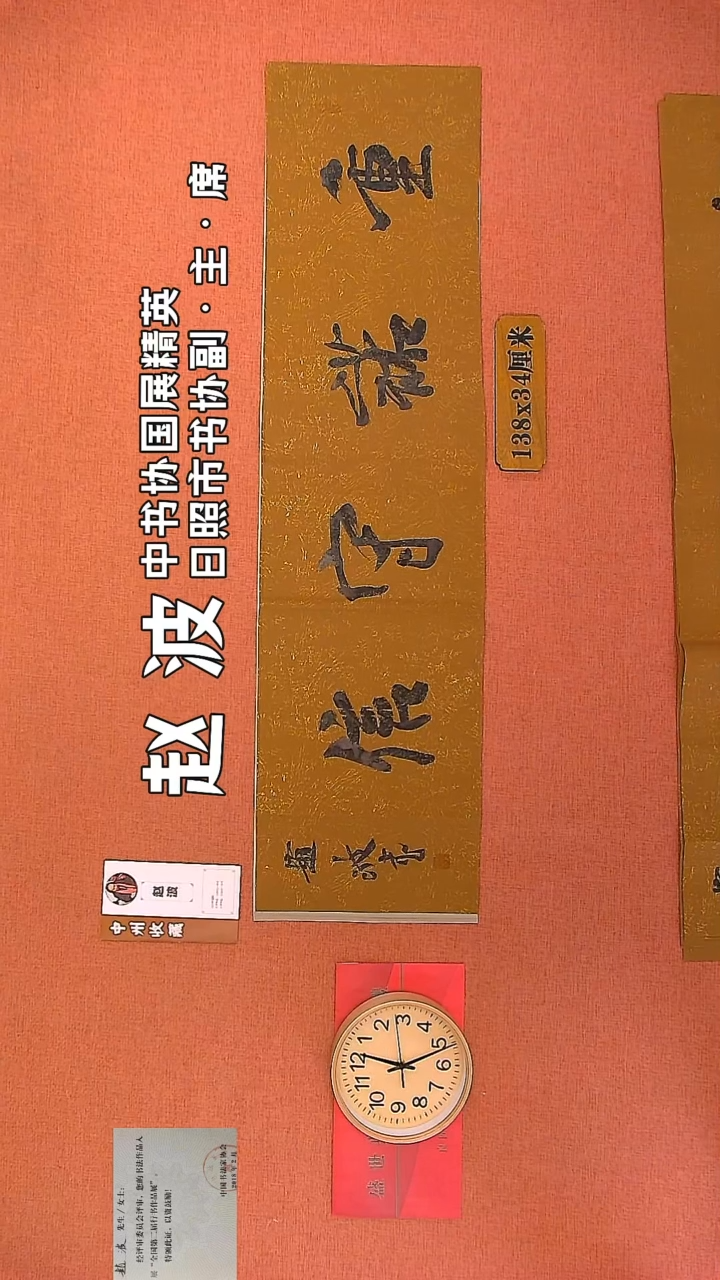 赵 波
中书协国展精英
日照市书协副·主·席
重諾守信
趙波书
138x34厘米
赵波
中州收藏
盛世
12
1
2
3
4
5
6
7
8
9
10
11
赵 波 先生/女士：
经评审委员会评审，您的书法作品入
展“全国第二届行书作品展”。
特颁此证，以资鼓励！
中国书法家协会